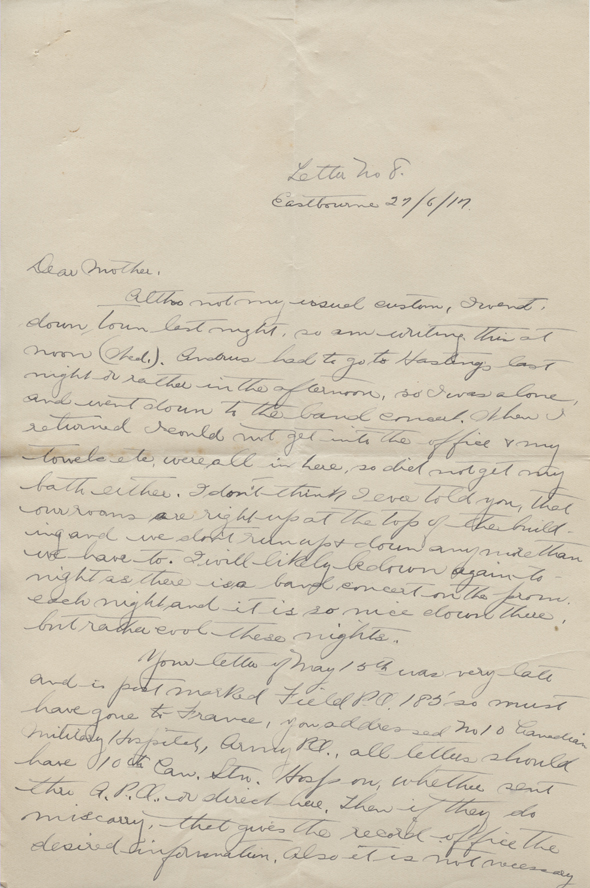 Letter No 8.
Eastbourne 27/6/17.
Dear Mother.
Altho not my usual custom, I went
down town last night, so am writing this at
noon (Wed.). Andrus had to go to Hastings last
night or rather in the afternoon, so I was alone,
and went down to the band concert. When I
returned I could not get into the office & my
towels etc, were all in here, so did not get my
bath either. I don't think I ever told you, that
our rooms are right up at the top of the build-
ing and we don't run up & down any more than
we have to. I will likely be down again to-
night as there is a band concert on the prom.
each night and it is so nice down there,
but rather cool these nights.
Your letter of May 15th was very late
and is post marked Field P.O. 185 so must
have gone to France, you addressed No 10 Canadian
Military Hospital, Army P.O., all letters should
have 10th Can. Stn. Hosp on, whether sent
thru A.P.O. or direct here. Then if they do
miscarry, that gives the record office the
desired information. Also it is not necessary